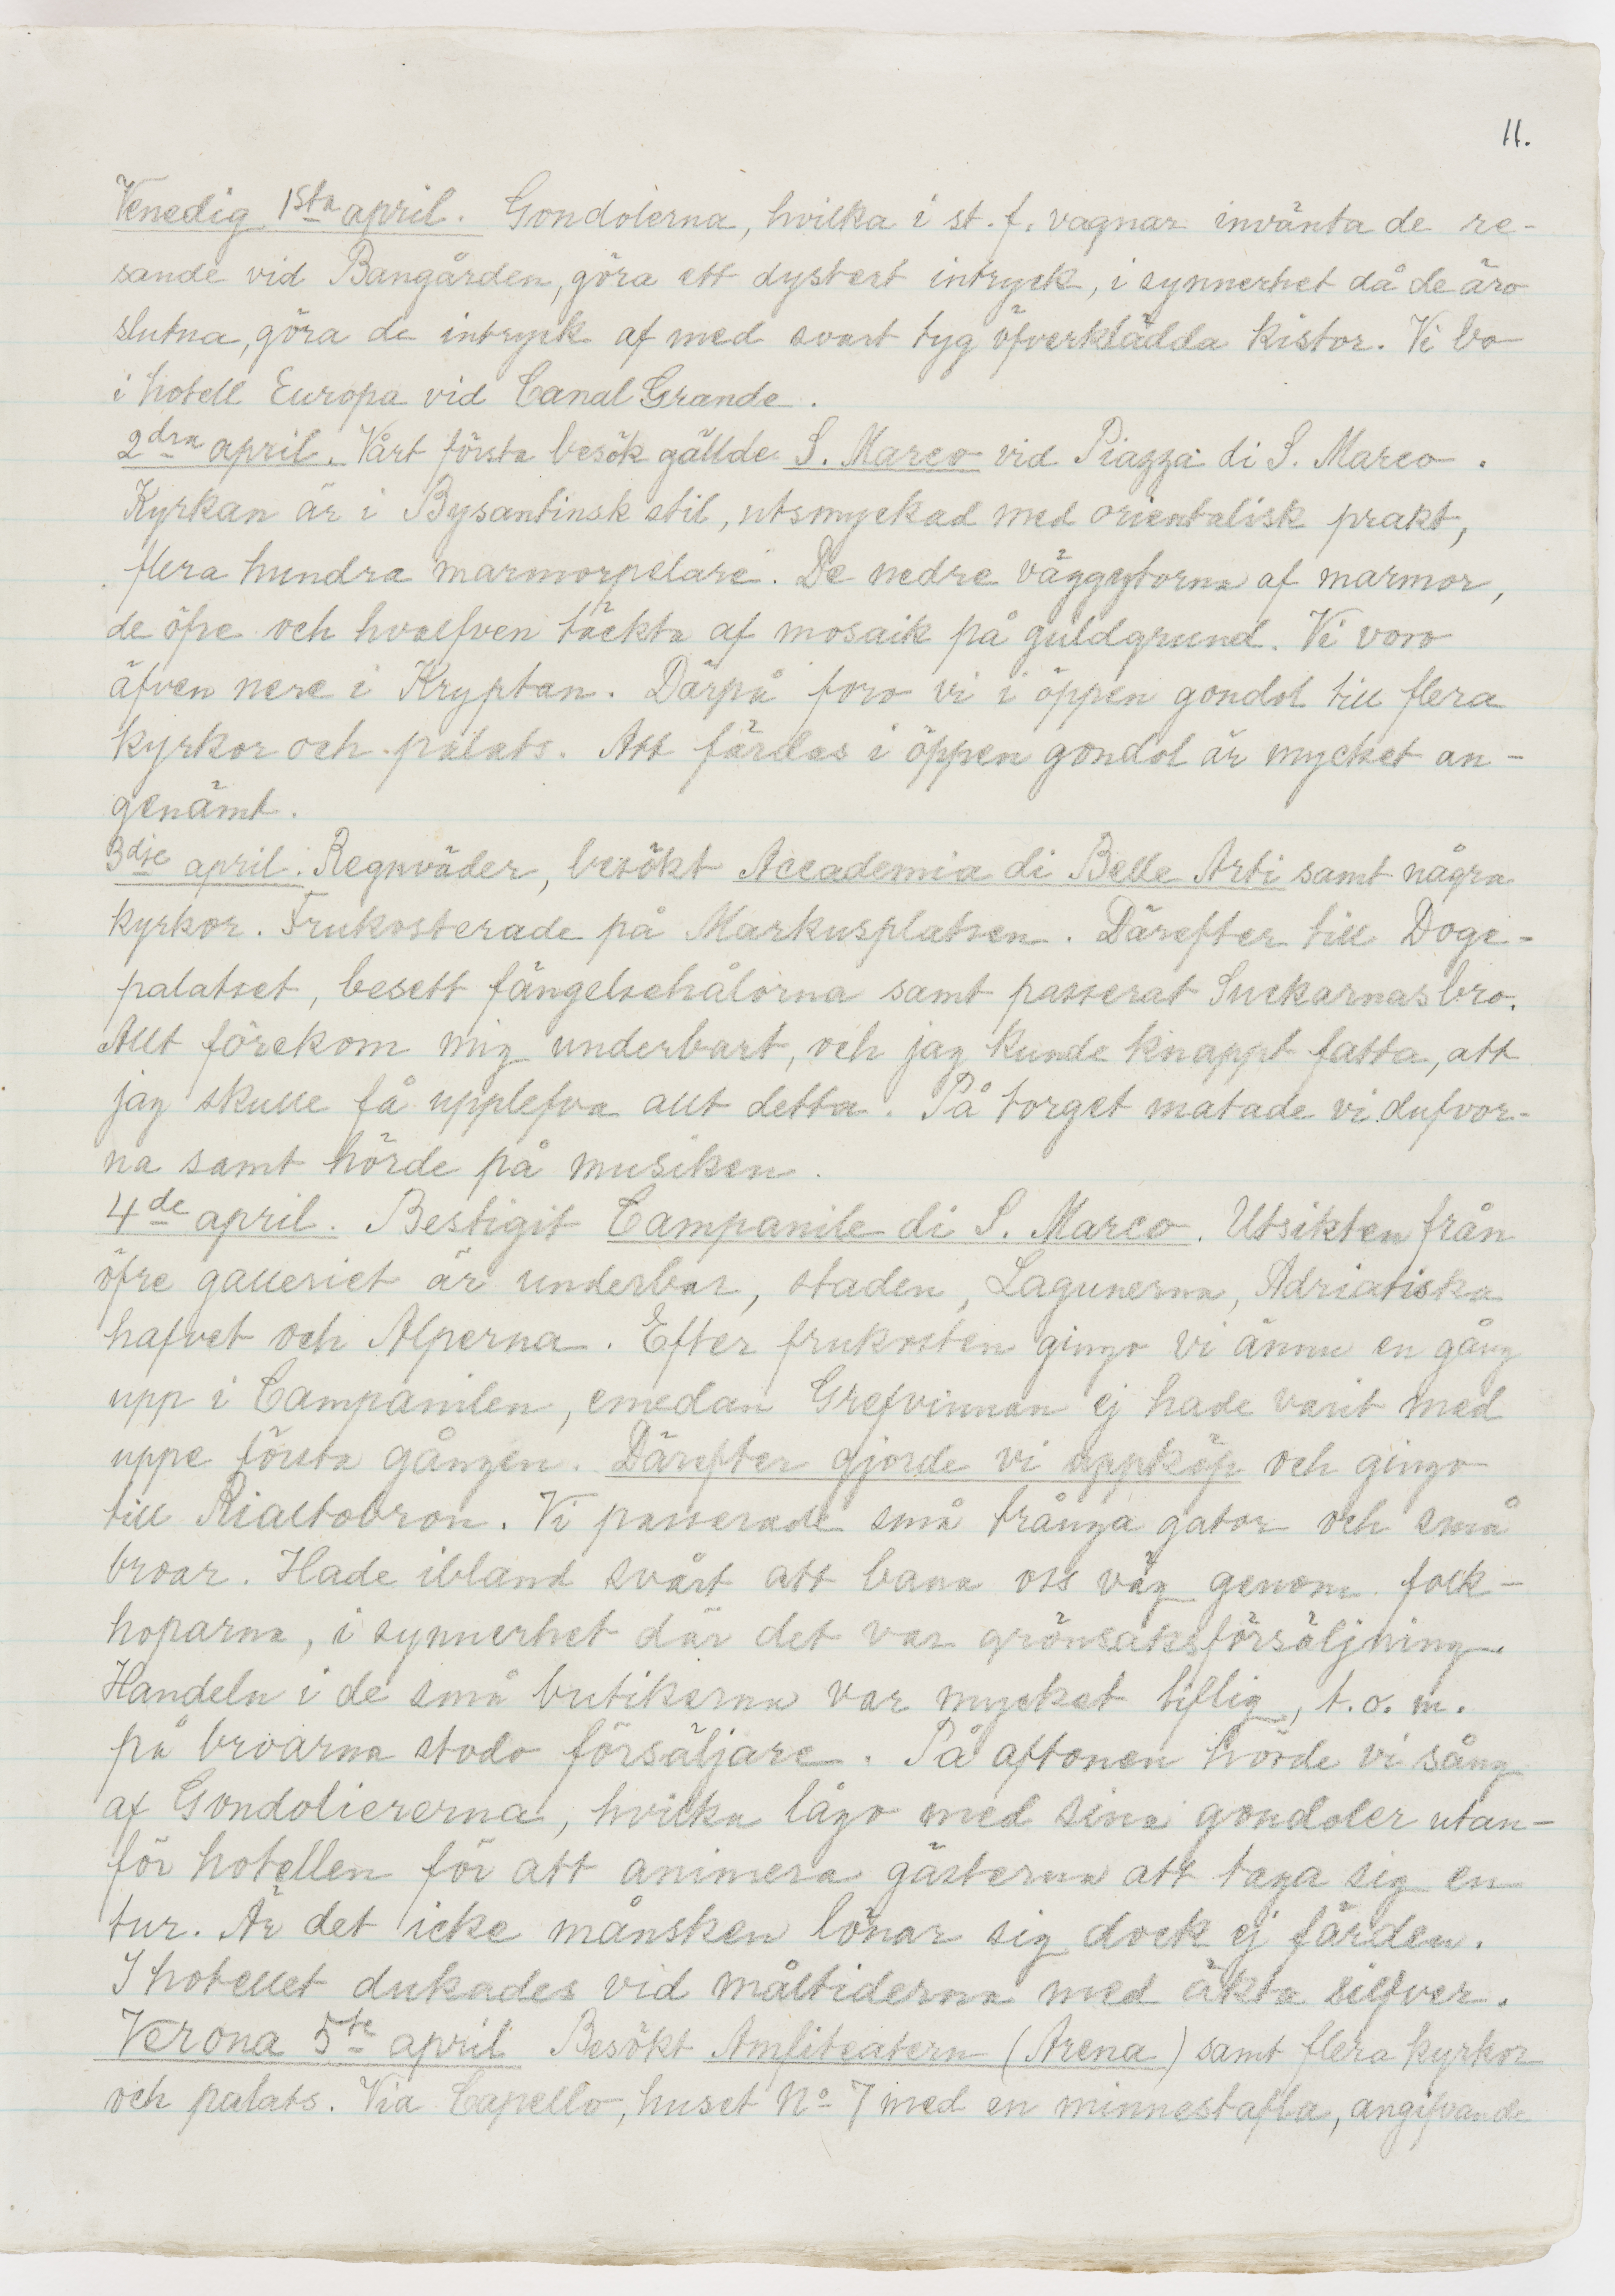 11.
Venedig 1sta april. Gondolerna, hvilka i st. f. vagnar invänta de re-
sande vid Bangården, göra ett dystert intryck, i synnerhet då de äro
slutna, göra de intryck af med svart tyg öfverklädda kistor. Vi bo
i hotell Europa vid Canal Grande.
2dra april. Vårt första besök gällde S. Marco vid Piazza di S. Marco.
Kyrkan är i Bysantinsk stil, utsmyckad med orientalisk prakt,
flera hundra marmorpelare. De nedre väggytorna af marmor,
de öfre och hvalfven täckta af mosaik på guldgrund. Vi voro
äfven nere i Kryptan. Därpå foro vi i öppen gondol till flera
kyrkor och palats. Att färdas i öppen gondol är mycket an-
genämt.
3dje april. Regnväder, besökt Accademia di Belle Arti samt några
kyrkor. Frukosterade på Markusplatsen. Därefter till Doge-
palatset, besett fängelsehålorna samt passerat Suckarnas bro.
Allt förekom mig underbart, och jag kunde knappt fatta, att
jag skulle få upplefva allt detta. På torget matade vi dufvor-
na samt hörde på musiken.
4de april. Bestigit Campanile di S. Marco. Utsikten från
öfre galleriet är underbar, staden, Lagunerna, Adriatiska
hafvet och Alperna. Efter frukosten gingo vi ännu en gång
upp i Campanilen, emedan Grefvinnan ej hade varit med
uppe första gången. Därefter gjorde vi uppköp och gingo
till Rialtobron. Vi passerade små trånga gator och små
broar. Hade ibland svårt att bana oss väg genom folk-
hoparna, i synnerhet där det var grönsaksförsäljning.
Handeln i de små butikerna var mycket liflig, t.o.m.
på broarna stodo försäljare. På aftonen hörde vi sång
af Gondoliererna, hvilka lågo med sina gondoler utan-
för hotellen för att animera gästerna att taga sig en
tur. Är det icke månsken lönar sig dock ej färden.
I hotellet dukades vid måltiderna med äkta silfver.
Verona 5te april Besökt Amfiteatern (Arena) samt flera kyrkor
och palats. Via Capello, huset No 7 med en minnestafla, angifvande